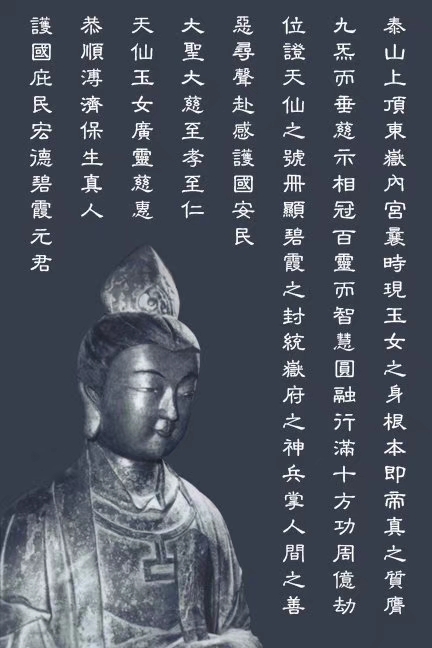 泰山上頂東嶽內宮曩時現玉女之身根本即帝真之質膺
九炁而垂慈示相冠百靈而智慧圓融行滿十方功周億劫
位證天仙之號冊顯碧霞之封統嶽府之神兵掌人間之善
惡尋聲赴感護國安民
大聖大慈至孝至仁
天仙玉女廣靈慈惠
恭順溥濟保生真人
護國庇民宏德碧霞元君